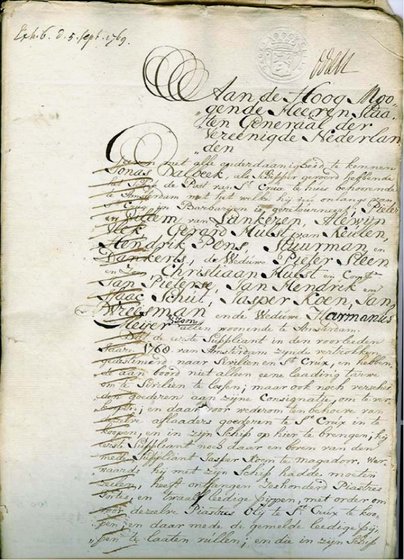 Exh. 6. d. 5. Sept. 1769.
Aan de Hoog Mo
gende Heeren Staa
ten Generaal der
Vereenigde Nederlan
den
Geeven met alle onderdaanigheid te kennen
Jonas Dalbeek, als Schipper gevoerd hebbende
't Schip de Post van St Crux te huis behoorende
te Amsterdam met het welke hij nu onlangs van
St Crux in Barbarien is geretourneerd, Pieter
en Adam van Santgen, Alewijn
Gerard Hulst van Keulen,
Hendrik Pons, Stuurman en
de Weduwe Pieter Steen
en Zoon, Christiaan Hulst en Comp.
Jan Pieterse, Jan Hendrik en
Isaac Schuit, Jasper Koen, Jan
Vreesman en de Weduwe Harmanus
Meijer alle woonende te Amsterdam
de eerste Suppliant in den voorleden
Jaare 1768 van Amsterdam zijnde vertrokken
gedestineerd naar Sevilien en St Crux, en hebben
de aan boord niet alleen eene leading tarwe
om te Sevilien te lossen; maar ook noch verscheide
goederen aan zijne Consignatie, om te ver
koopen; en daar voor wederom ten behoeve van
aflaaders goederen te St Crux in te
koopen, en in zijn Schip op hier te brengen; hij
eerste Suppliant noch daar en boven van den
med Suppliant Jasper Koen te magador, ver
waards hij met zijn Schip hadde moeten
zeilen, heeft ontfangen Seshonderd Piasters
fortes, en leedige pijpen, met order om
voor dezelve Piasters olij te St Crux te koo
pen; en daar mede de gemelde leedige pij
pen te laaten vullen; en die in zijn Schip